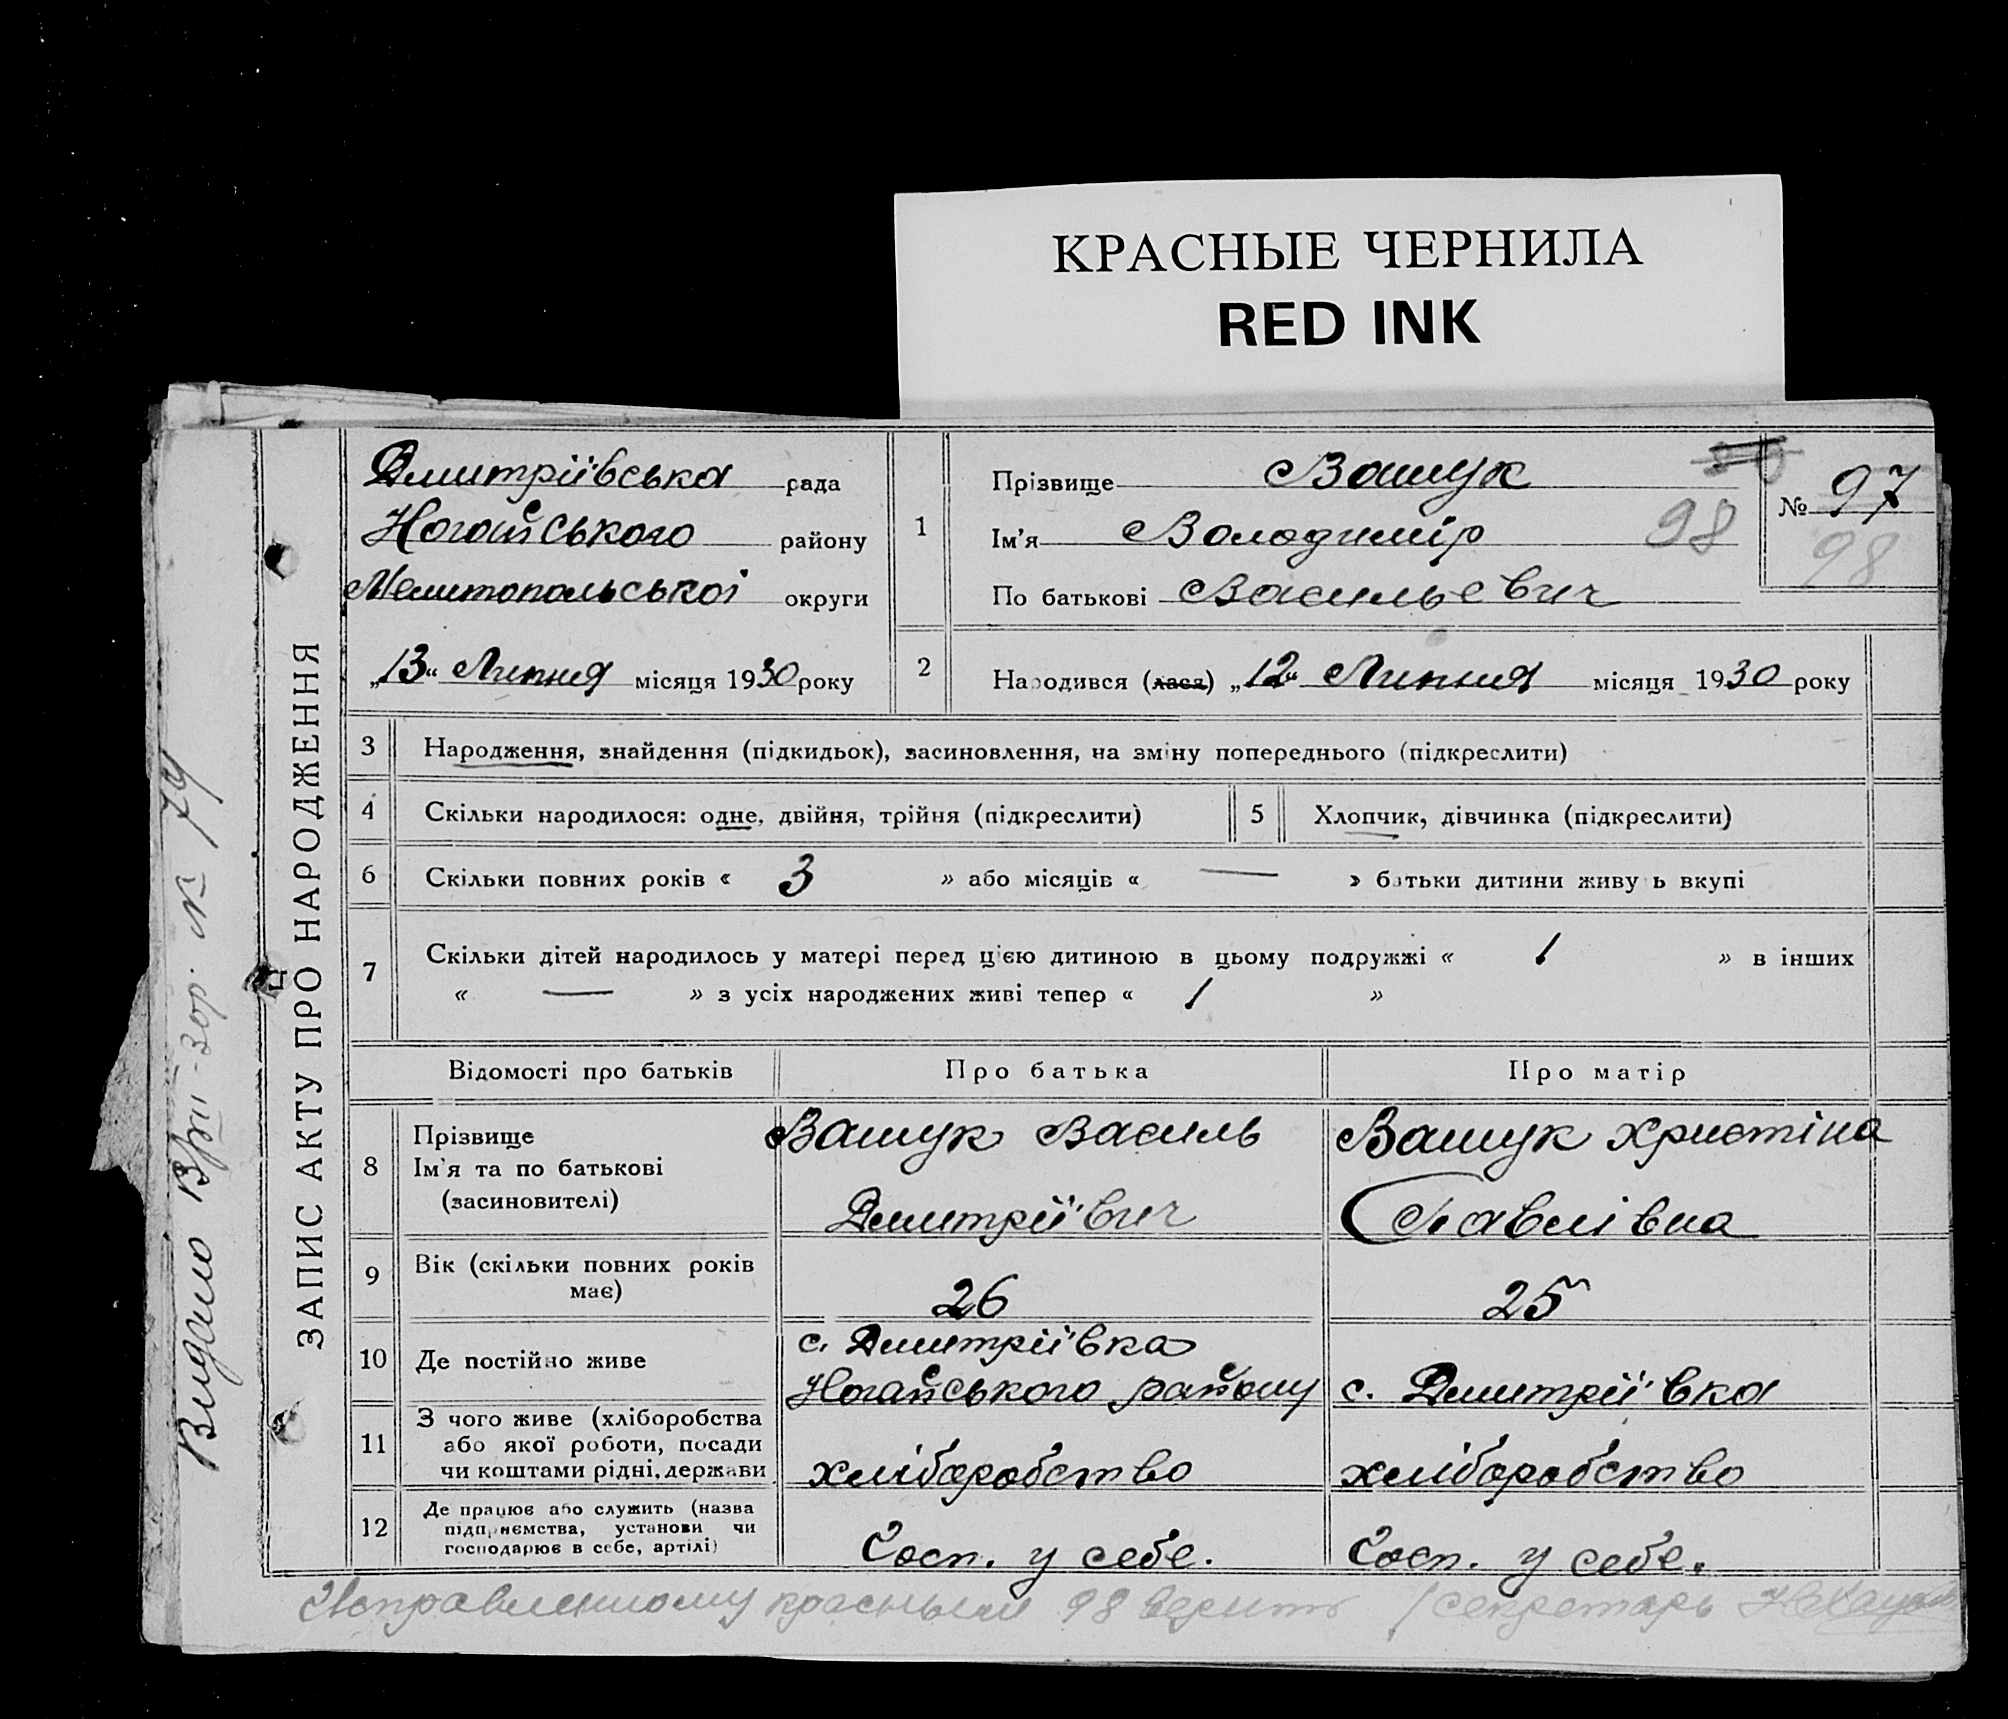 КРАСНЫЕ ЧЕРНИЛА
RED INK
Дмитріївська рада
Ногайського району
Мелитопольської округи
„13“ Липня місяця 1930 року
1
Прізвище Вашук
Ім'я Володимір 98
По батькові Васильевич
№ 97
98
2
Народився (лася) „12“ Липня місяця 1930 року
ЗАПИС АКТУ ПРО НАРОДЖЕННЯ
3 Народження, знайдення (підкидьок), засиновлення, на зміну попереднього (підкреслити)
4 Скільки народилося: одне, двійня, трійня (підкреслити) 5 Хлопчик, дівчинка (підкреслити)
6 Скільки повних років « 3 » або місяців « — » батьки дитини живуть вкупі
7 Скільки дітей народилось у матері перед цією дитиною в цьому подружжі « 1 » в інших
« — » з усіх народжених живі тепер « 1 »
Відомості про батьків Про батька Про матір
8 Прізвище
Ім'я та по батькові
(засиновителі)
Вашук Василь
Дмитріївич
Вашук Христіна
Павлівна
9 Вік (скільки повних років
має)
26 25
10 Де постійно живе
с. Дмитріївка
Ногайського району
с. Дмитріївка
11 З чого живе (хліборобства
або якої роботи, посади
чи коштами рідні, держави
хліборобство хліборобство
12 Де працює або служить (назва
підприємства, установи чи
господарює в себе, артілі)
Госп. у себе. Госп. у себе.
Исправленному красными 98 верить /секретарь
Видано № 74